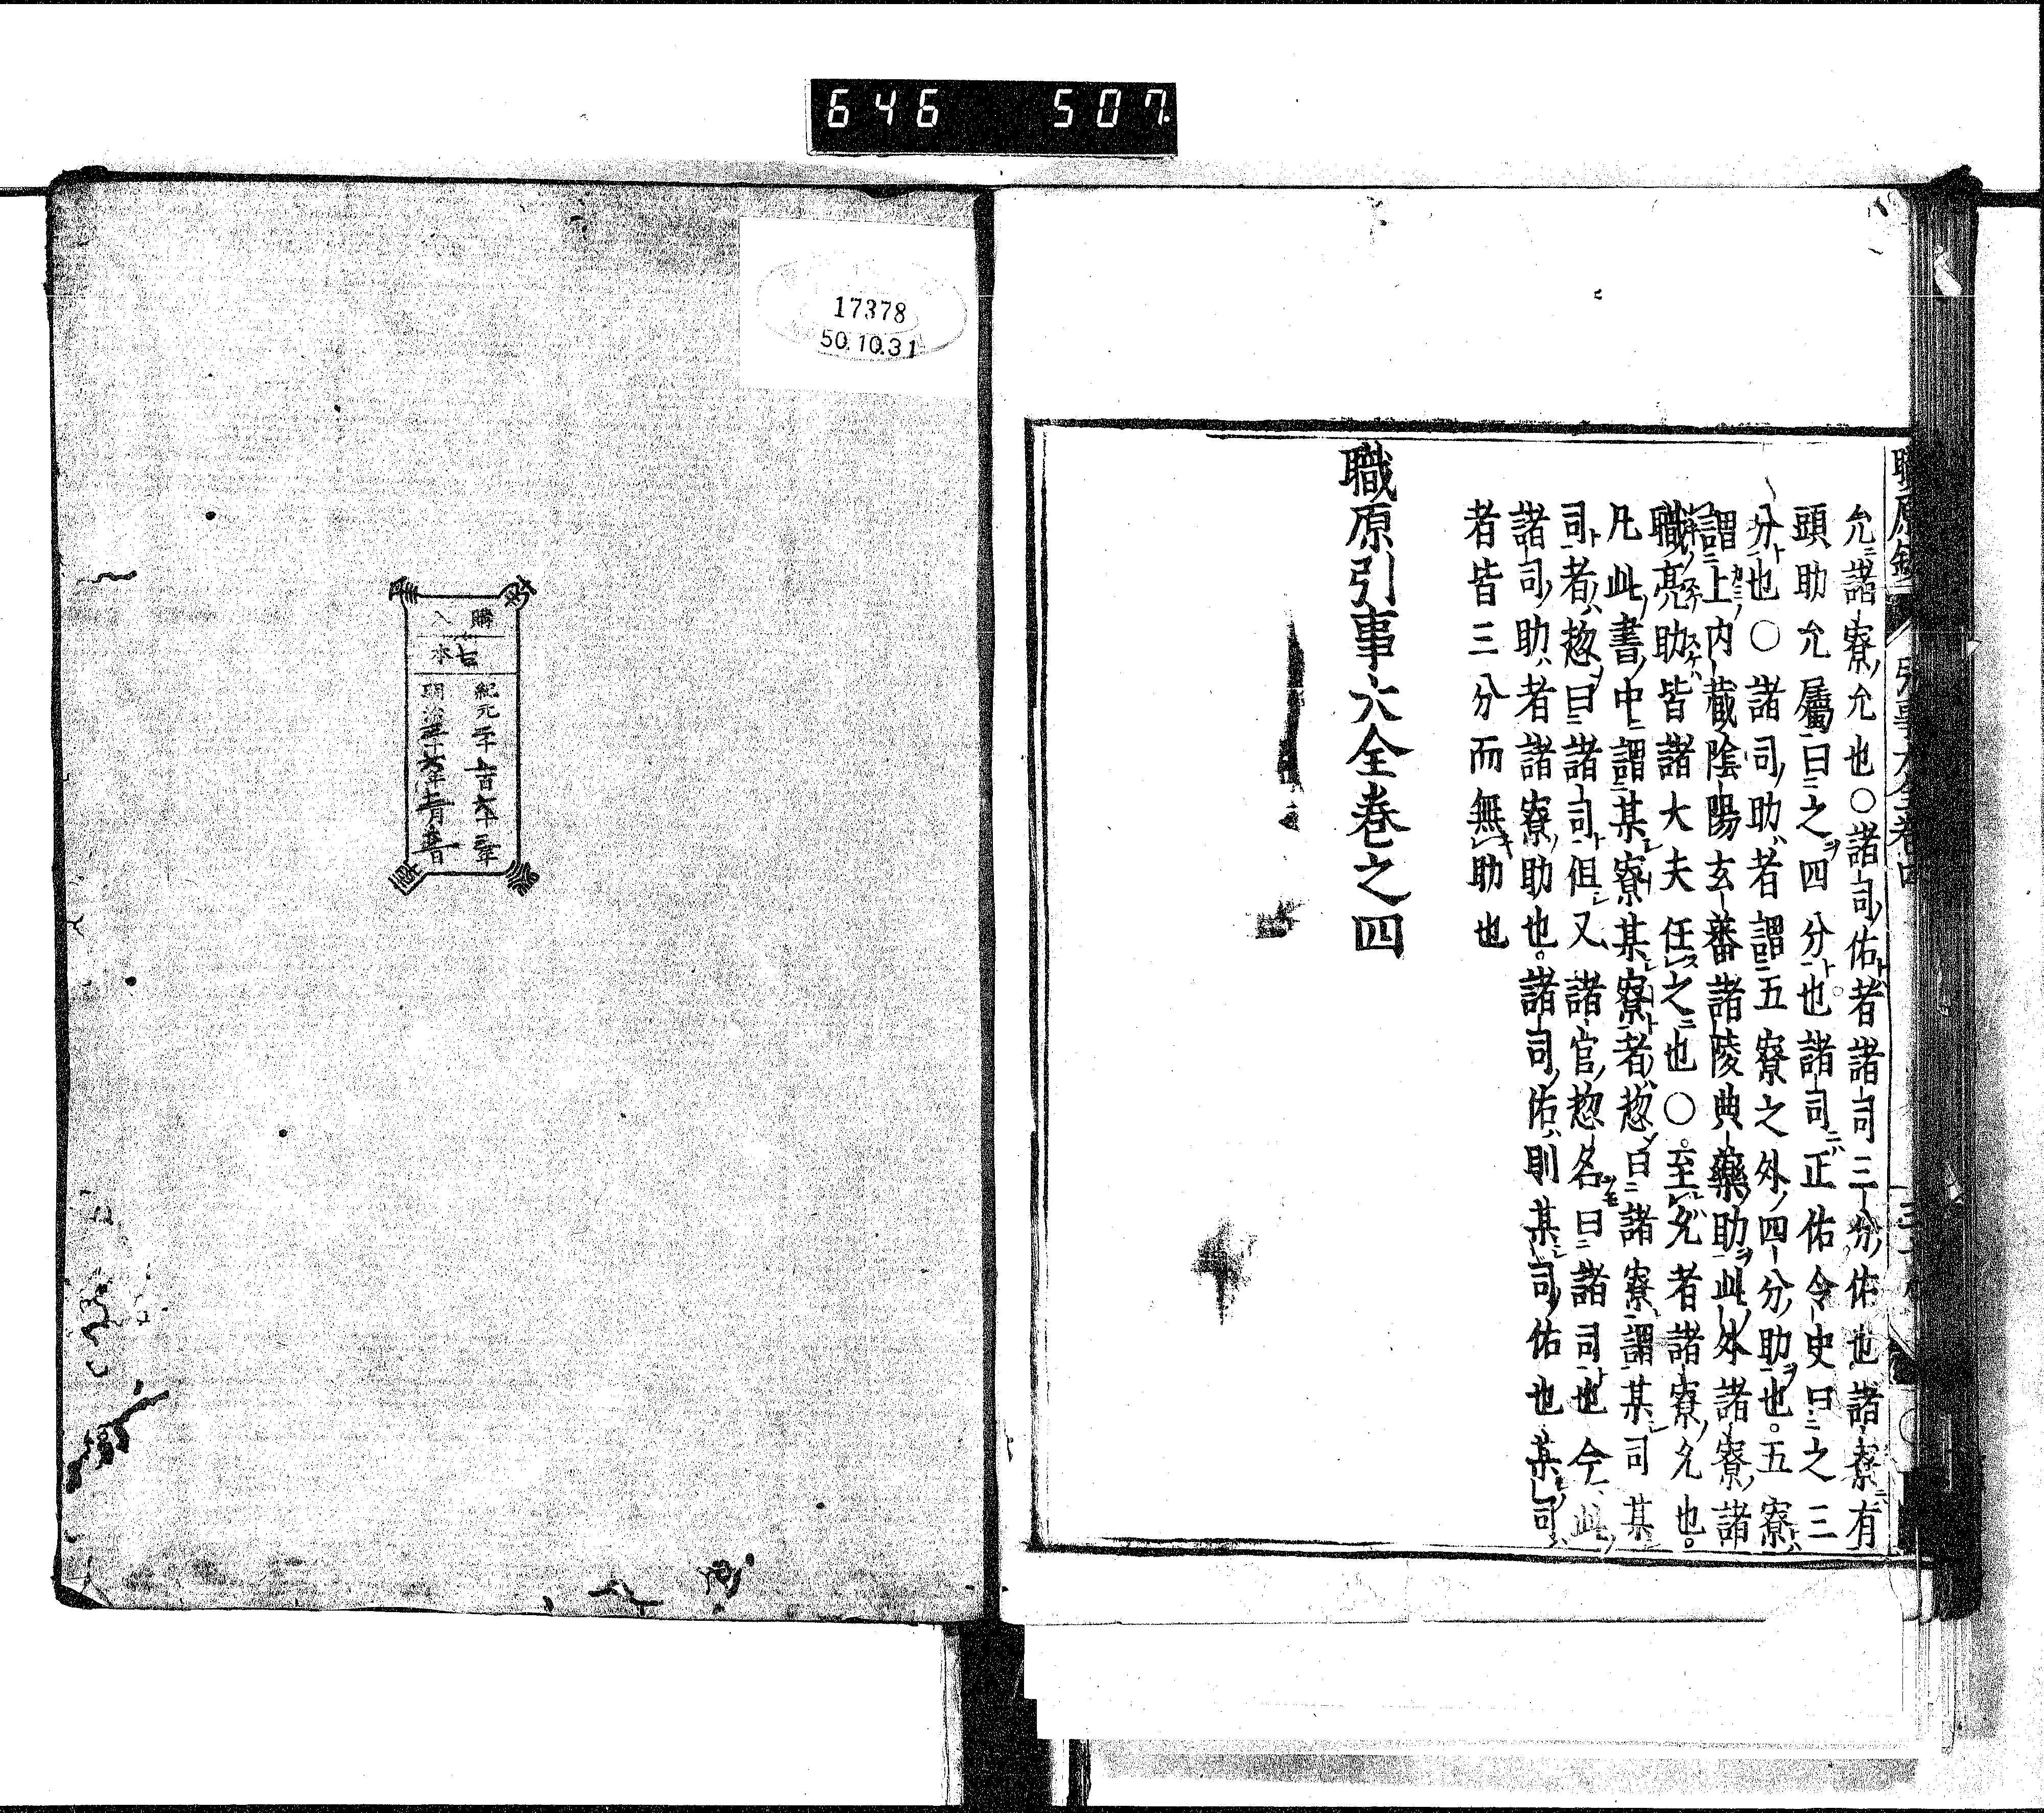 646 507.
允諸寮允也○諸司佑者諸司三分佑也諸寮有
頭助允屬曰之四分也諸司正佑令史曰之三
分也○諸司助者謂五寮之外四分助也。五寮
謂上内藏陰陽玄蕃諸陵典藥助此外諸寮諸
職亮助皆諸大夫任之也○至允者諸寮允也。
凡此書中謂某寮某寮者惣曰諸寮謂某司某
司者惣曰諸司但又諸官惣名曰諸司也今此
諸司助者諸寮助也。諸司佑則某司佑也某司
者皆三分而無助也
職原引事大全卷之四
17378
50.10.31
購入